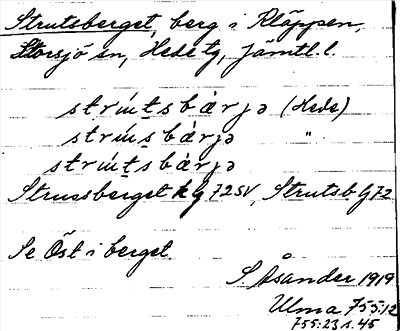 Strutsberget, berg i Kläppen,
Storsjö sn, Hede tg, Jämtl. l.
strṹtsbàrjə (Hede)
strṹsbàrjə "
strṹtsbàrjə
Strussberget kg 72 SV, Strutsb. G 72
Se Öst i berget.
S. Åsander 1919
Ulma 755:12
755:23 s. 45